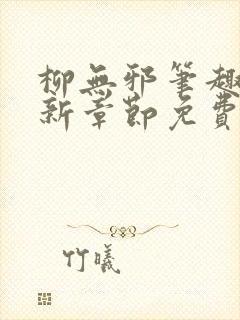 柳無邪筆趣
新章節免費
竹曦